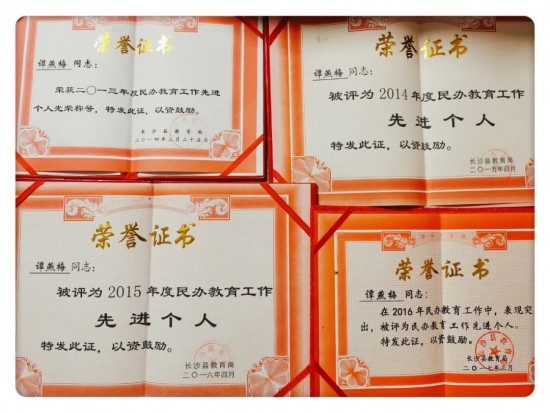 荣誉证书
谭燕梅 同志:
荣获二〇一三年度民办教育工作先进
个人光荣称号，特发此证，以资鼓励。
长沙县教育局
二〇一四年二月二十五日
荣誉证书
谭燕梅 同志:
被评为2014年度民办教育工作
先进个人
特发此证，以资鼓励。
长沙县教育局
二〇一五年四月
荣誉证书
谭燕梅 同志:
被评为2015年度民办教育工作
先进个人
特发此证，以资鼓励。
长沙县教育局
二〇一六年四月
荣誉证书
谭燕梅 同志:
在2016年民办教育工作中，表现突
出，被评为民办教育工作先进个人。
特发此证，以资鼓励。
长沙县教育局
二〇一七年三月